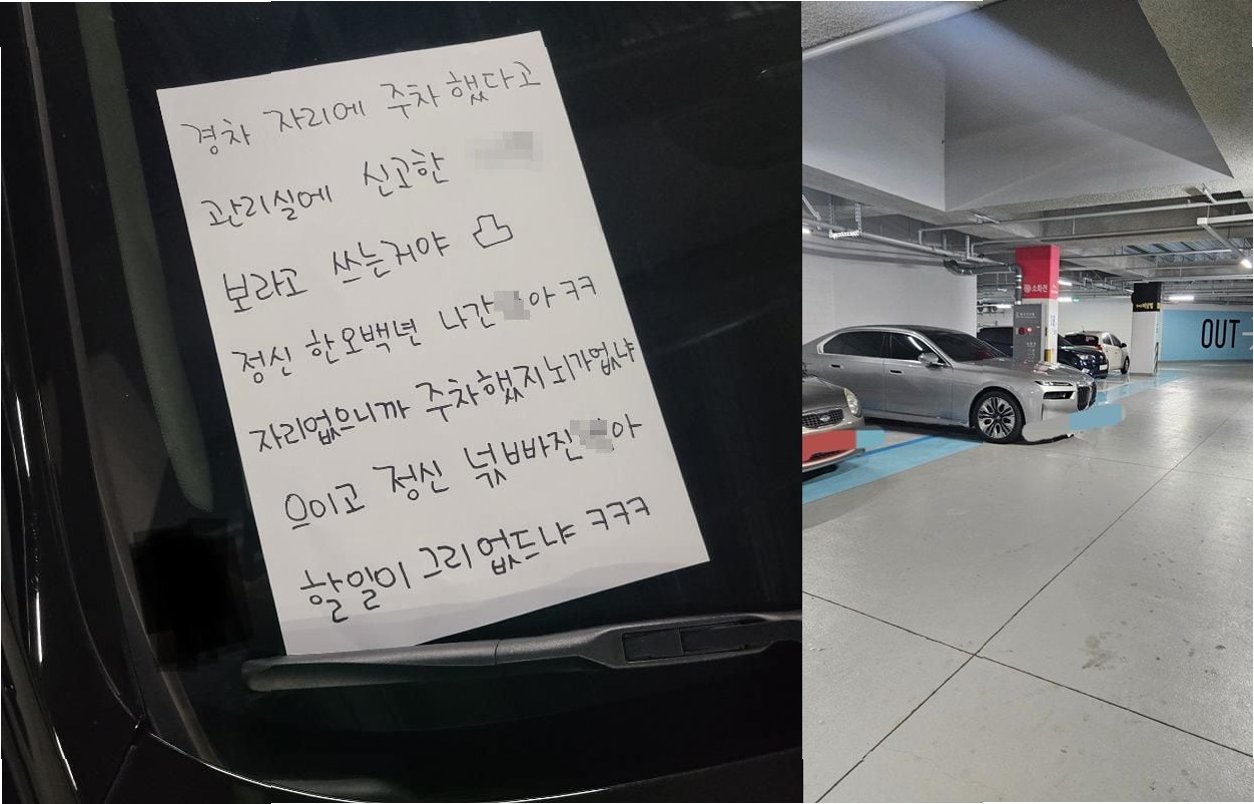 경차 자리에 주차했다고
관리실에 신고한
보라고 쓰는거야
정신 한오백년 나간 아 ㅋㅋ
자리없으니까 주차했지 뇌가없냐
으이고 정신 넋빠빠진 아
할일이 그리 없드냐 ㅋㅋㅋ
소화전
OUT